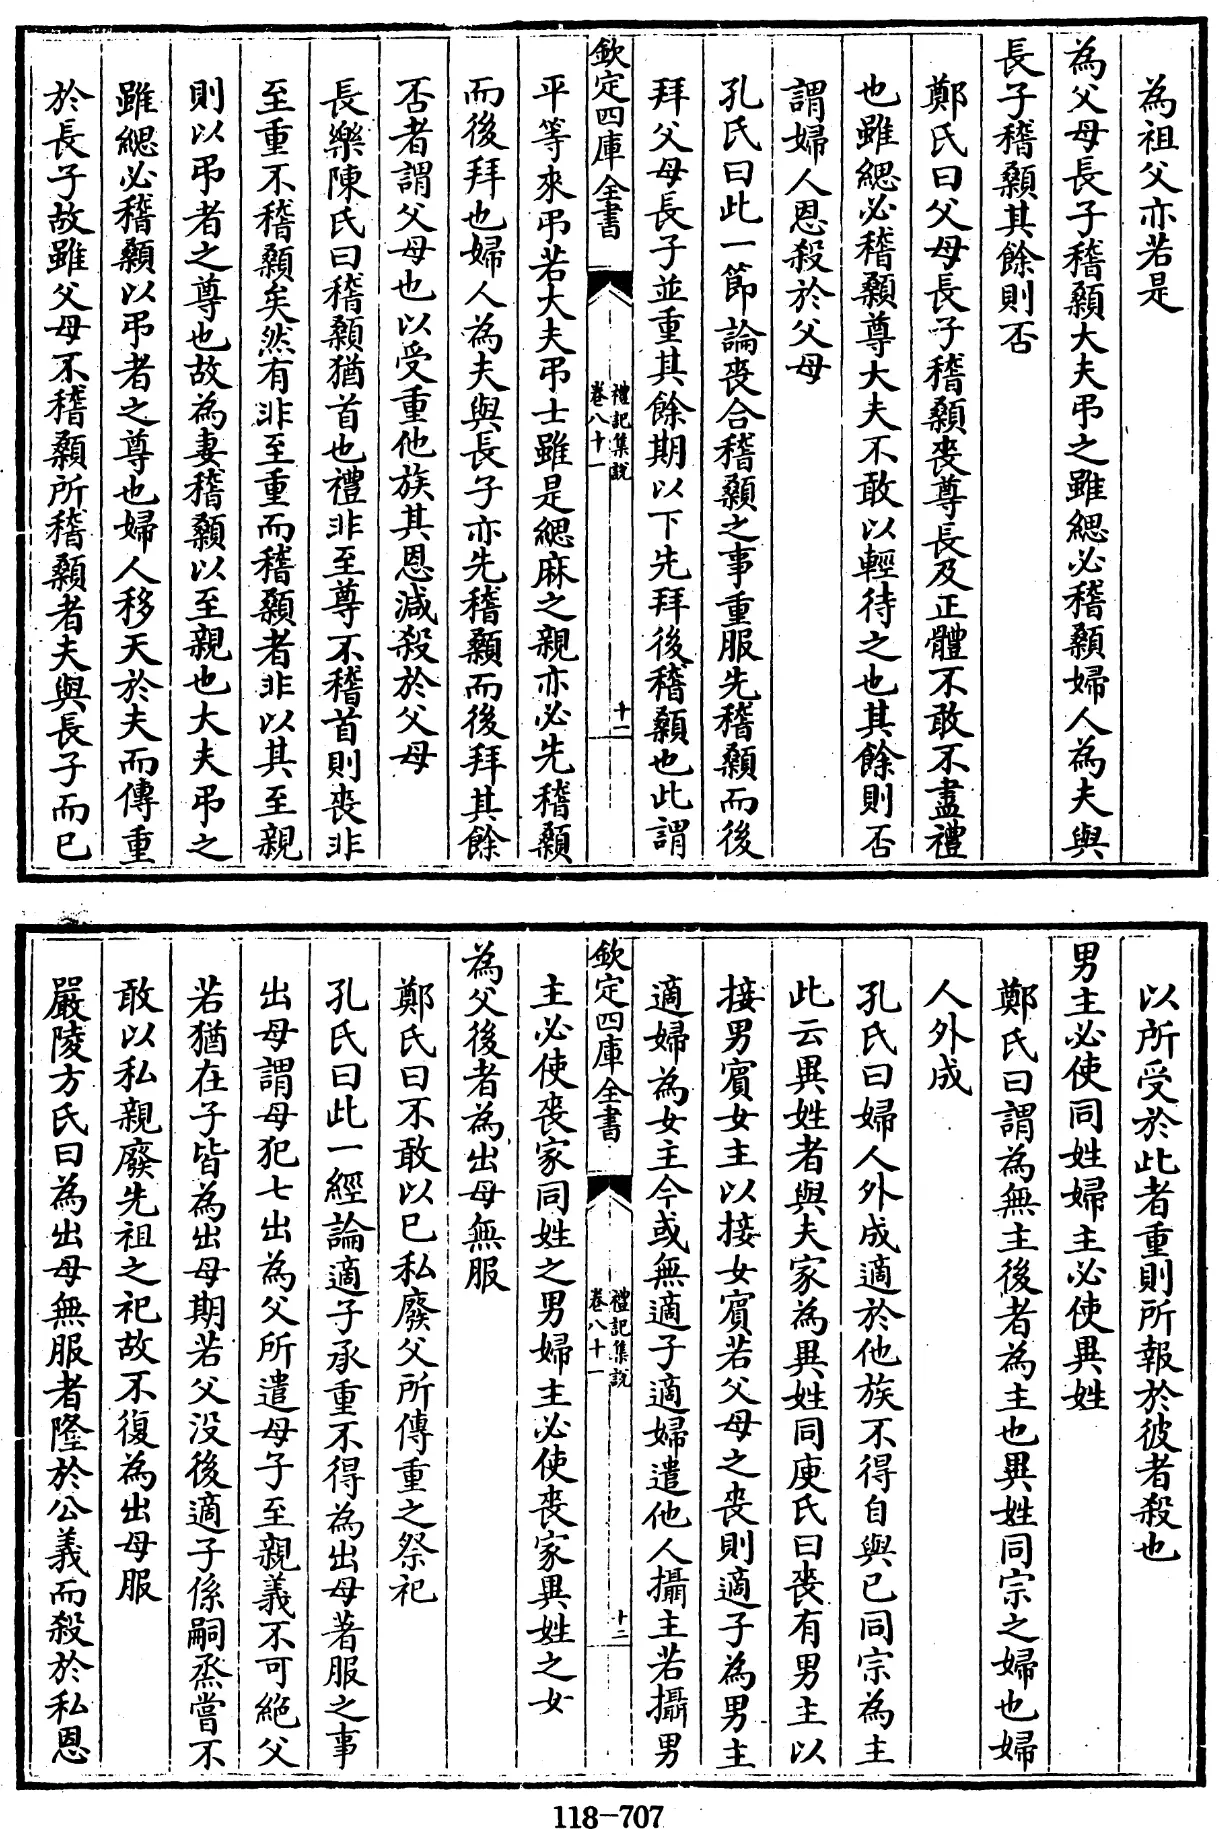 為祖父亦若是
為父母長子稽顙大夫弔之雖緦必稽顙婦人為夫與
長子稽顙其餘則否
鄭氏曰父母長子稽顙喪尊長及正體不敢不盡禮
也雖緦必稽顙尊大夫不敢以輕待之也其餘則否
謂婦人恩殺於父母
孔氏曰此一節論喪合稽顙之事重服先稽顙而後
拜父母長子並重其餘期以下先拜後稽顙也此謂
欽定四庫全書
禮記集說
卷八十一
十一
平等來弔若大夫弔士雖是緦麻之親亦必先稽顙
而後拜也婦人為夫與長子亦先稽顙而後拜其餘
否者謂父母也以受重他族其恩減殺於父母
長樂陳氏曰稽顙猶首也禮非至尊不稽首則喪非
至重不稽顙矣然有非至重而稽顙者非以其至親
則以弔者之尊也故為妻稽顙以至親也大夫弔之
雖緦必稽顙以弔者之尊也婦人移天於夫而傳重
於長子故雖父母不稽顙所稽顙者夫與長子而已
以所受於此者重則所報於彼者殺也
男主必使同姓婦主必使異姓
鄭氏曰謂為無主後者為主也異姓同宗之婦也婦
人外成
孔氏曰婦人外成適於他族不得自與已同宗為主
此云異姓者與夫家為異姓同庾氏曰喪有男主以
接男賓女主以接女賓若父母之喪則適子為男主
適婦為女主今或無適子適婦遣他人攝主若攝男
欽定四庫全書
禮記集說
卷八十一
十二
主必使喪家同姓之男婦主必使喪家異姓之女
為父後者為出母無服
鄭氏曰不敢以已私廢父所傳重之祭祀
孔氏曰此一經論適子承重不得為出母著服之事
出母謂母犯七出為父所遣母子至親義不可絕父
若猶在子皆為出母期若父没後適子係嗣烝嘗不
敢以私親廢先祖之祀故不復為出母服
嚴陵方氏曰為出母無服者隆於公義而殺於私恩
118-707